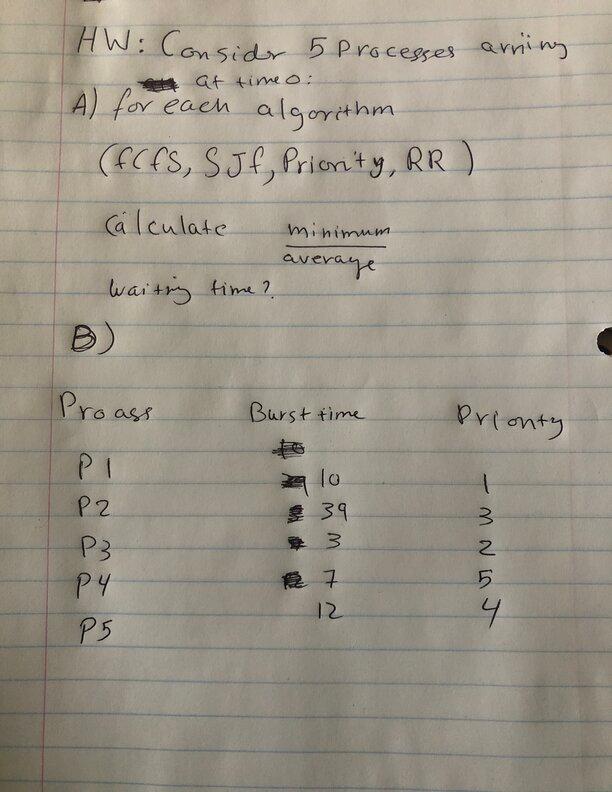 HW: Consider 5 Processes arriing
at time 0:
A) for each algorithm
(fCfS, SJf, Priority, RR)
Calculate minimum
average
waiting time?
B)
Process Burst time Priority
P1 10 1
P2 39 3
P3 3 2
P4 7 5
P5 12 4